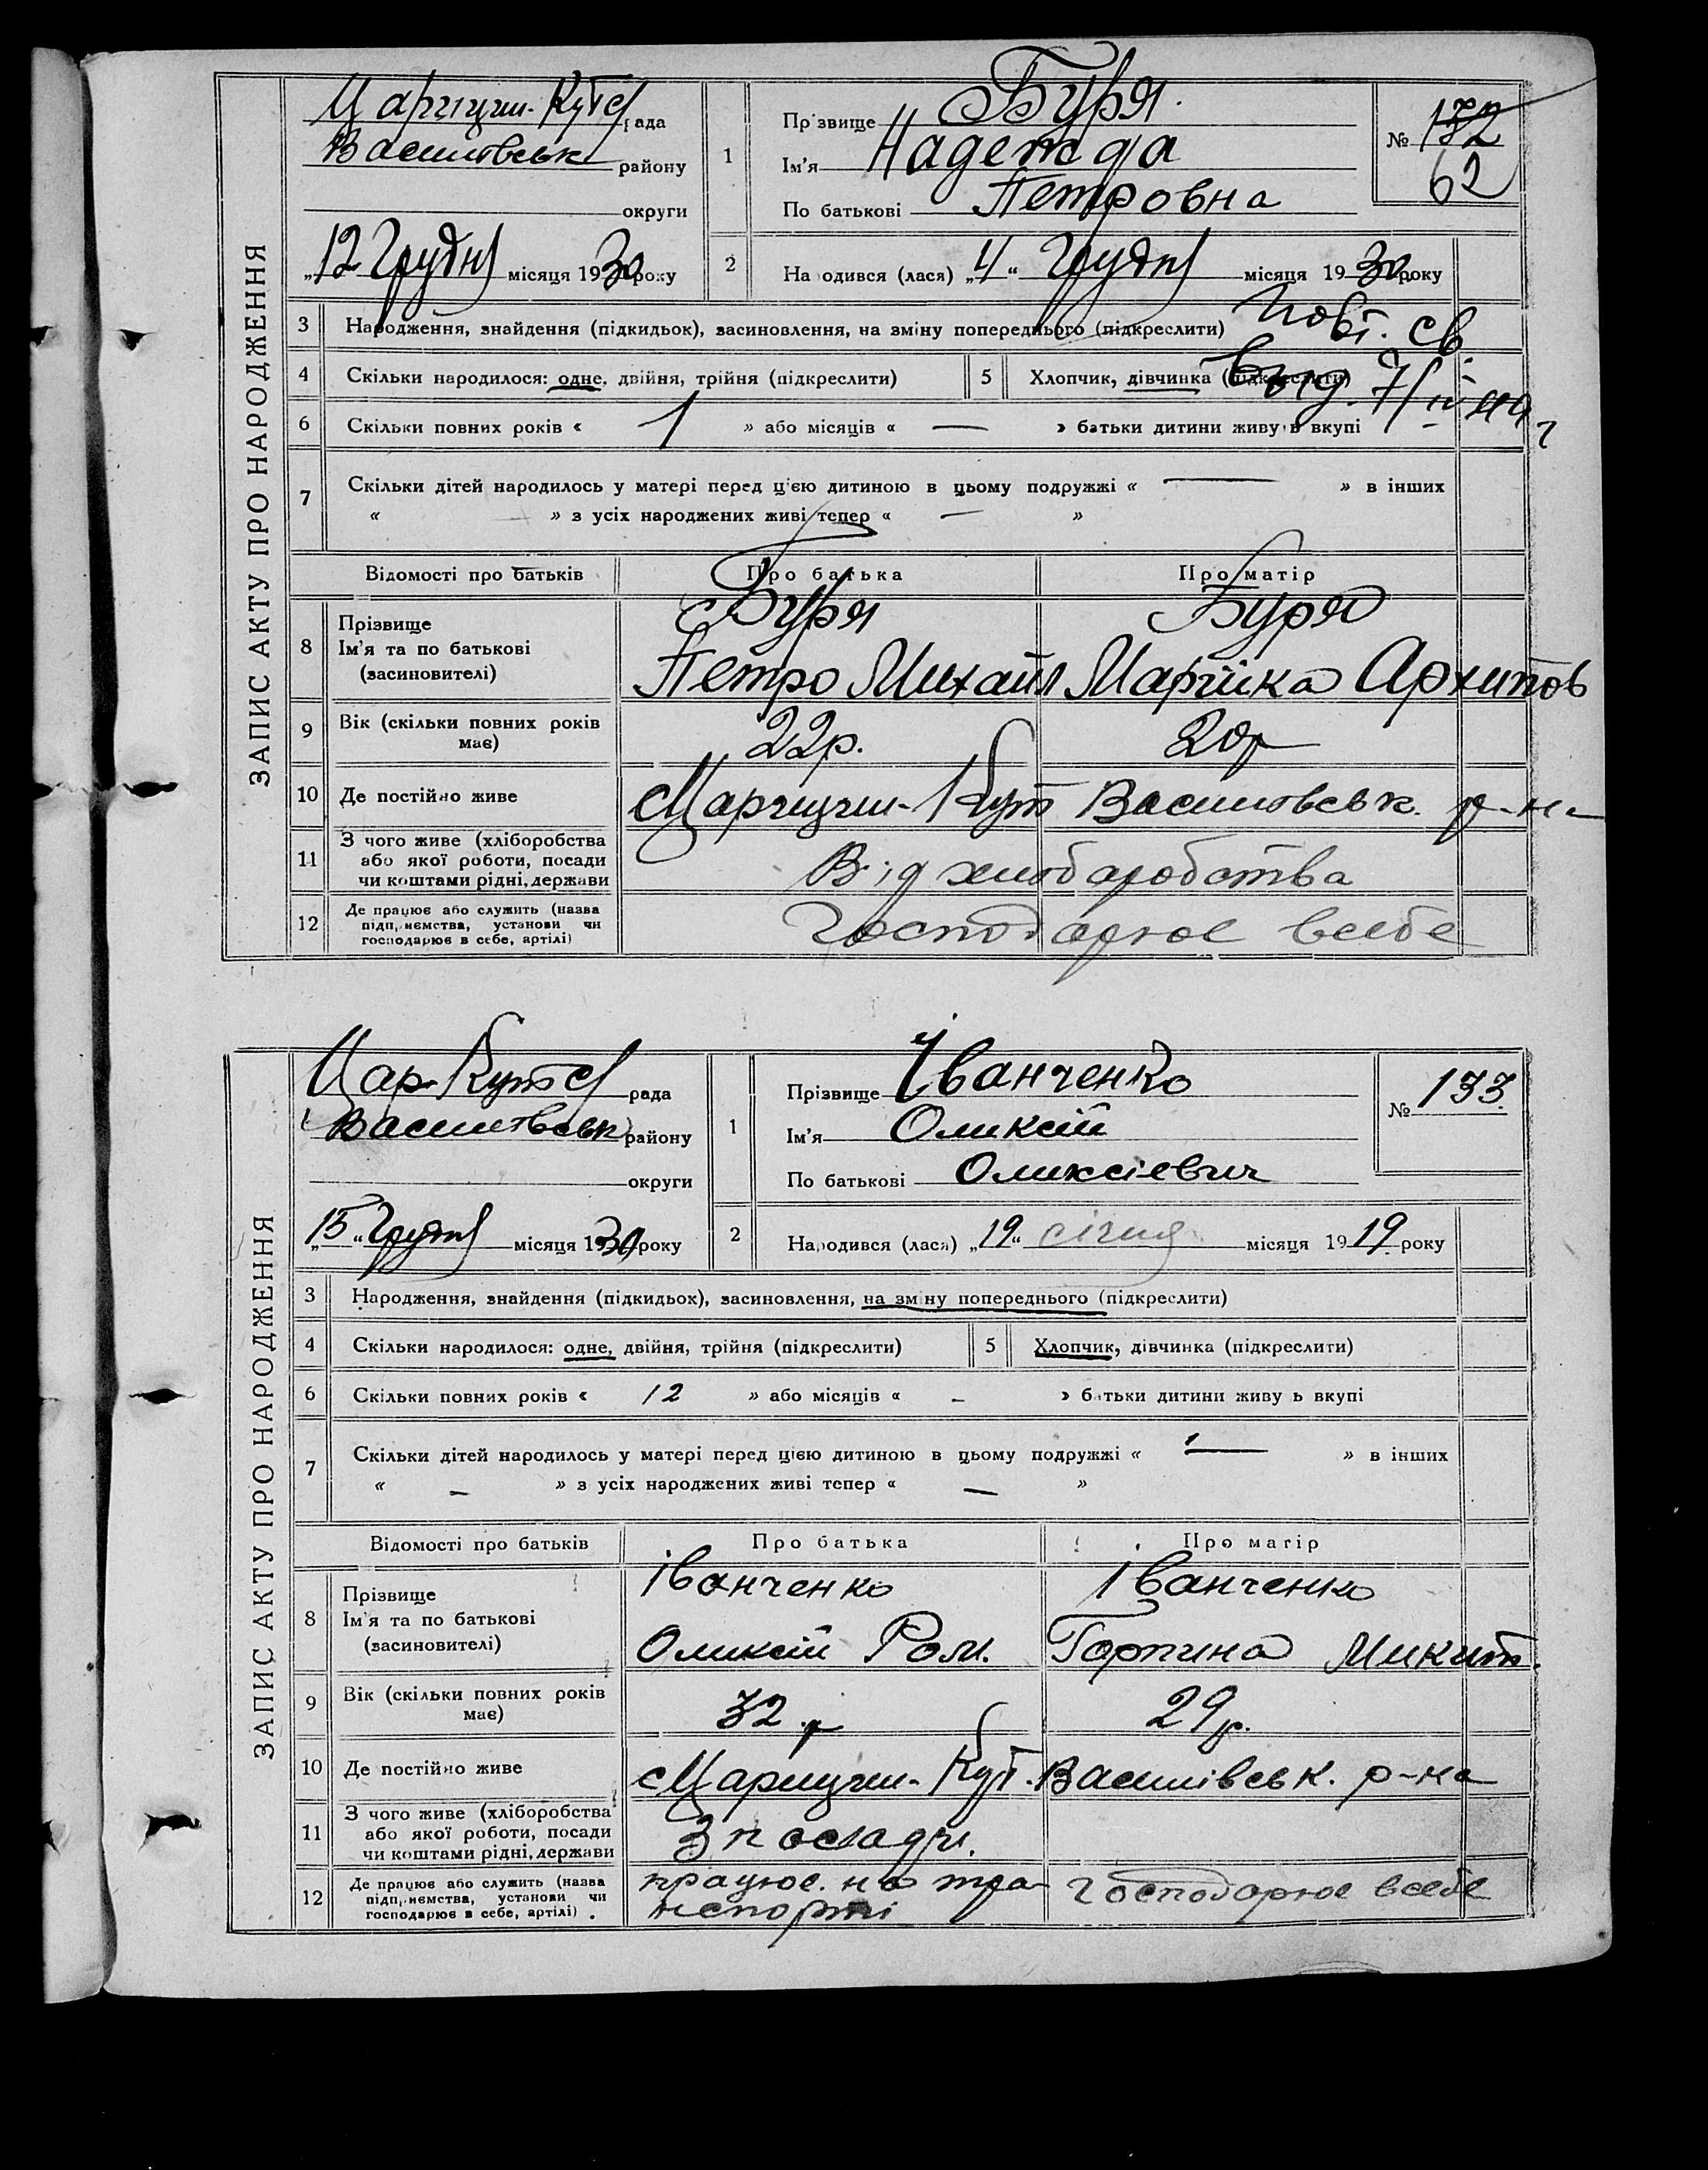 ЗАПИС АКТУ ПРО НАРОДЖЕННЯ
Царицин-Кутс рада
Василівськ району
округи
„12 Грудня місяця 1930 року
1 Прізвище Буря
Ім'я Надежда
По батькові Петровна
№ 132
62
2 Народився (лася) „4“ Грудня місяця 1930 року
3 Народження, знайдення (підкидьок), засиновлення, на зміну попереднього (підкреслити)
Повт. св.
выд. 7/IV 49 г
4 Скільки народилося: одне, двійня, трійня (підкреслити) 5 Хлопчик, дівчинка (підкреслити)
6 Скільки повних років « 1 » або місяців « — » батьки дитини живуть вкупі
7 Скільки дітей народилось у матері перед цією дитиною в цьому подружжі « — » в інших
« — » з усіх народжених живі тепер « — »
Відомості про батьків Про батька Про матір
8 Прізвище Ім'я та по батькові (засиновителі)
Буря Буря
Петро Михайл Марійка Архипов
9 Вік (скільки повних років має) 22р. 20р
10 Де постійно живе Царицин-Кут Василівськ. р-на
11 З чого живе (хліборобства або якої роботи, посади чи коштами рідні, держави Від хліборобства
12 Де працює або служить (назва підприємства, установи чи господарює в себе, артілі) Господарює всебе
ЗАПИС АКТУ ПРО НАРОДЖЕННЯ
Цар-Кутс рада
Василівськ району
округи
„15“ Грудня місяця 1930 року
1 Прізвище Іванченко
Ім'я Олексій
По батькові Олексієвич
№ 133
2 Народився (лася) „19“ січня місяця 1919 року
3 Народження, знайдення (підкидьок), засиновлення, на зміну попереднього (підкреслити)
4 Скільки народилося: одне, двійня, трійня (підкреслити) 5 Хлопчик, дівчинка (підкреслити)
6 Скільки повних років « 12 » або місяців « - » батьки дитини живуть вкупі
7 Скільки дітей народилось у матері перед цією дитиною в цьому подружжі « — » в інших
« - » з усіх народжених живі тепер « — »
Відомості про батьків Про батька Про матір
8 Прізвище Ім'я та по батькові (засиновителі)
Іванченко Іванченко
Олексій Ром. Горпина Микит.
9 Вік (скільки повних років має) 32 р 29р.
10 Де постійно живе Царицин-Кут. Василівськ. р-на
11 З чого живе (хліборобства або якої роботи, посади чи коштами рідні, держави З посади.
12 Де працює або служить (назва підприємства, установи чи господарює в себе, артілі)
працює на тра- Господарює всебе
нспорті